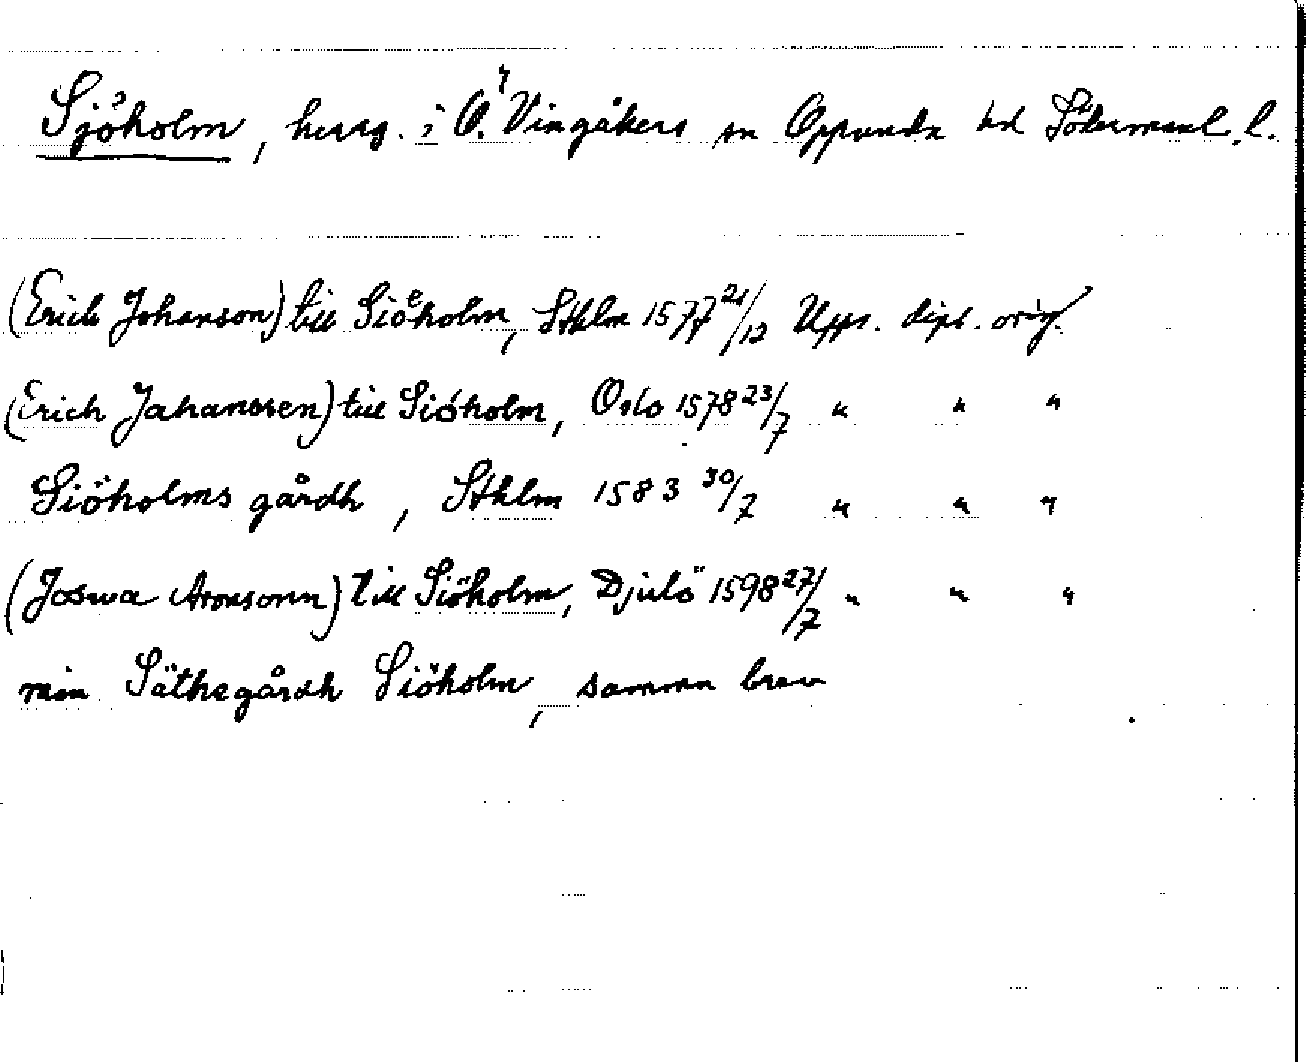 Sjöholm, herrg. i Ö. Vingåkers sn Oppunda hd Södermanl. l.
(Erich Johanson) till Sioͤholm, Sthlm 1577 21/12 Upps. dipl. orig.
(Erich Jahanssen) till Siöholm, Oslo 1578 23/7 " " "
Siöholms gårdh, Sthlm 1583 30/7 " " "
(Joswa Aronsonn) till Siöholm, Djulö 1598 27/7 " " "
min Säthegårdh Siöholm, samma brev